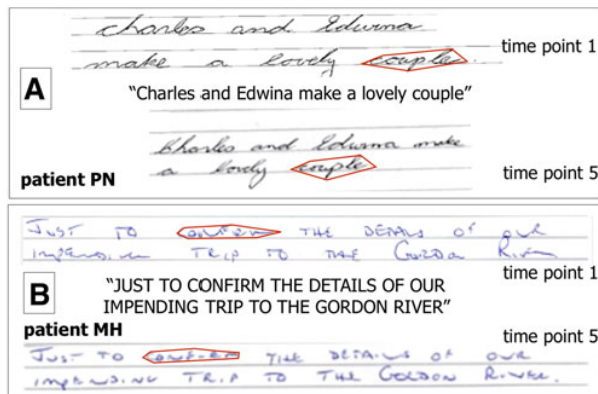 charles and Edwina
time point 1
make a lovely couple.
A
"Charles and Edwina make a lovely couple"
Charles and Edwina make
a lovely couple
time point 5
patient PN
JUST TO CONFIRM THE DETAILS OF OUR
IMPENDING TRIP TO THE GORDON RIVER
time point 1
B
"JUST TO CONFIRM THE DETAILS OF OUR
IMPENDING TRIP TO THE GORDON RIVER"
patient MH
time point 5
JUST TO CONFIRM THE DETAILS OF OUR
IMPENDING TRIP TO THE GORDON RIVER.